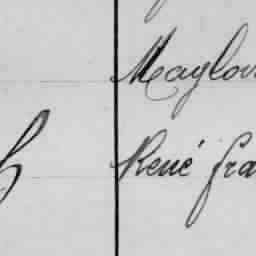 Maylou
René fra